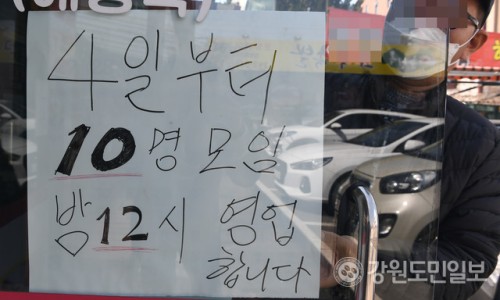 4일부터
10명 모임
밤12시 영업
합니다
강원도민일보